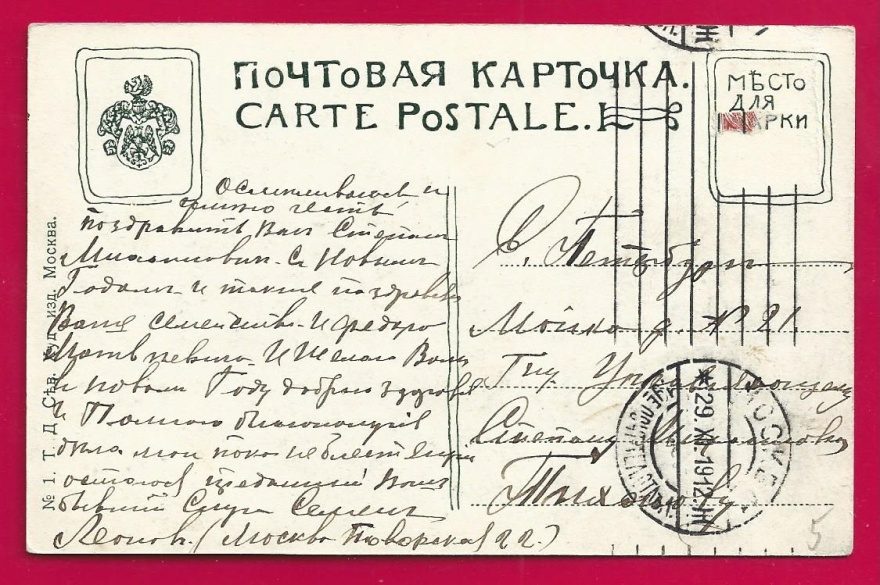 ПОЧТОВАЯ КАРТОЧКА.
CARTE POSTALE.
МѢСТО
ДЛЯ
МАРКИ
№ 1. Т. Д. Сѣв. Худ. изд. Москва.
Осмеливаюсь и
честь
поздравить Васъ Степанъ
Михайловичъ Съ Новымъ
Годомъ и также поздравля
Ваше семейство И Федора
И Желаю Вамъ
в Новом Году доброго здоровя
И Полного благополучия
дела мои пока не блестящи
остаюсь преданный Вамъ
бывший Слуга Семенъ
Леоновъ (Москва Поворская 22.)
С. Петербург
Мойка д. № 21.
Гну Управляющему
Степану Михайловичу
Тихонову
МОСКВА
*29.XII.1912
5